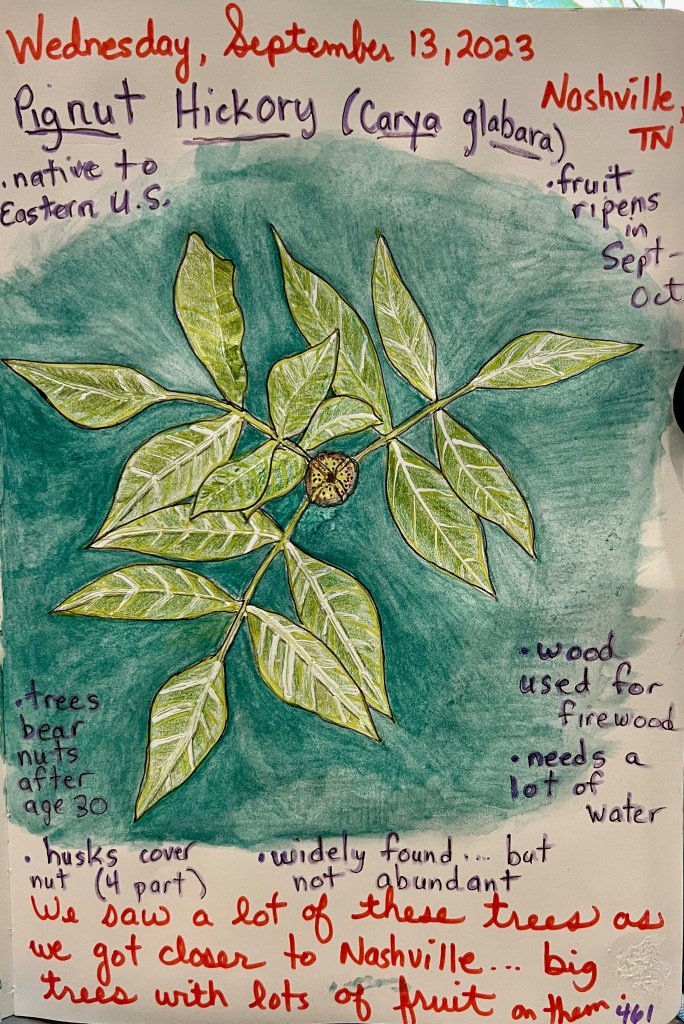 Wednesday, September 13, 2023
Pignut Hickory (Carya glabara)
Nashville,
TN
• native to
Eastern U.S.
• fruit
ripens
in
Sept-
Oct
• wood
used for
firewood
• needs a
lot of
water
• trees
bear
nuts
after
age 30
• husks cover
nut (4 part)
• widely found... but
not abundant
We saw a lot of these trees as
we got closer to Nashville... big
trees with lots of fruit on them.
461